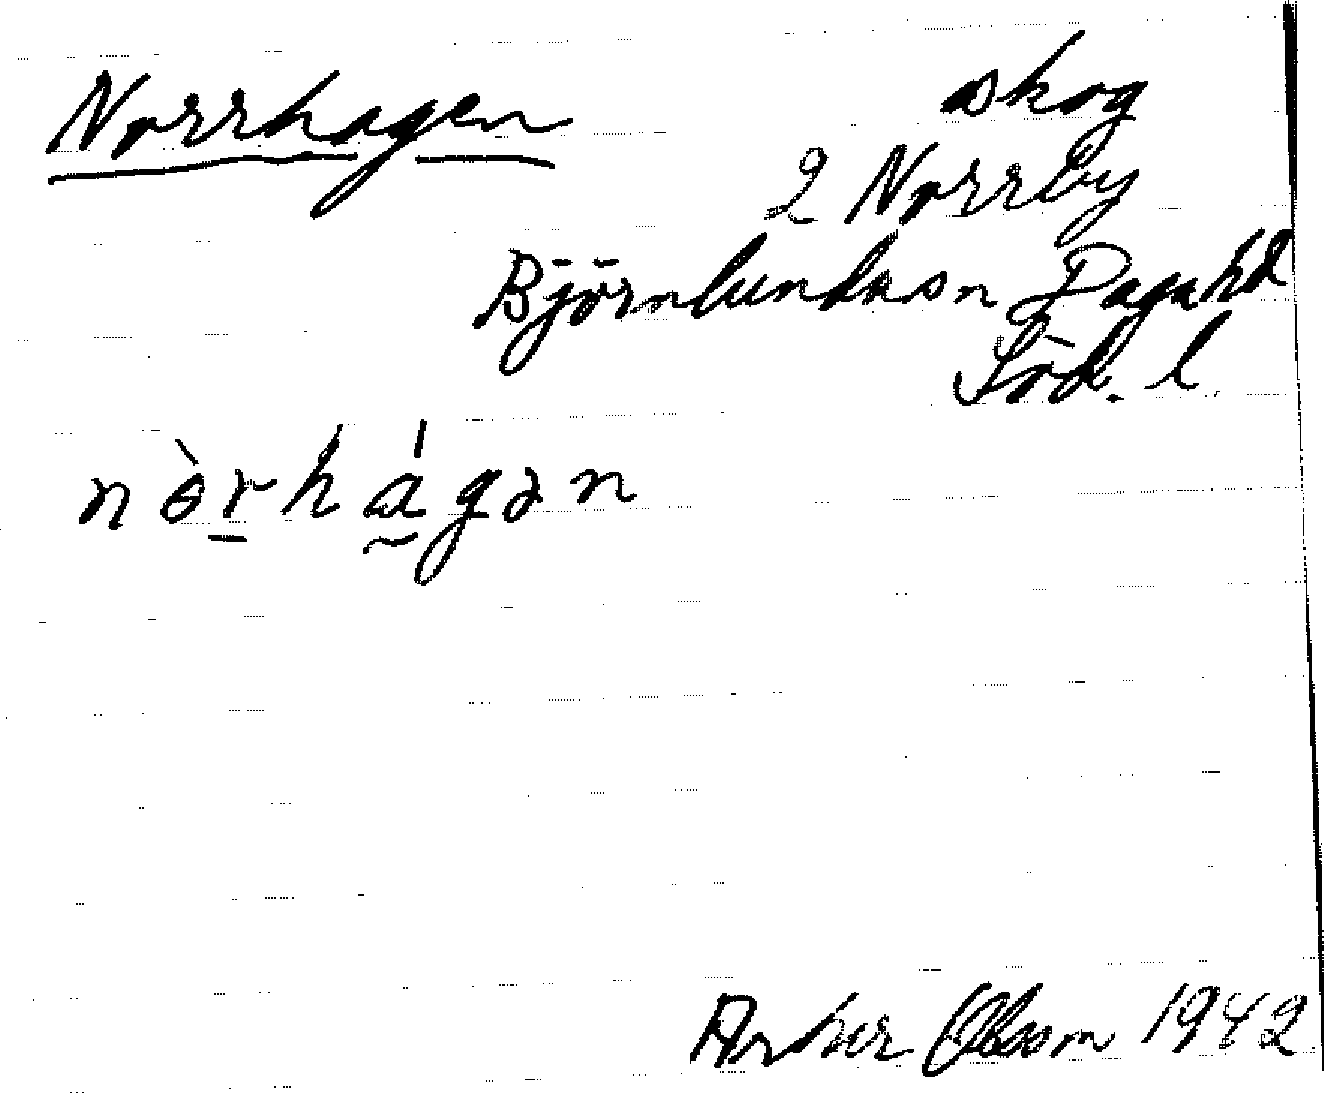 Norrhagen
skog
2 Norrby
Björnlunda sn Dagahd
Söd. l.
nòrhágən
Arthur Olsson 1942